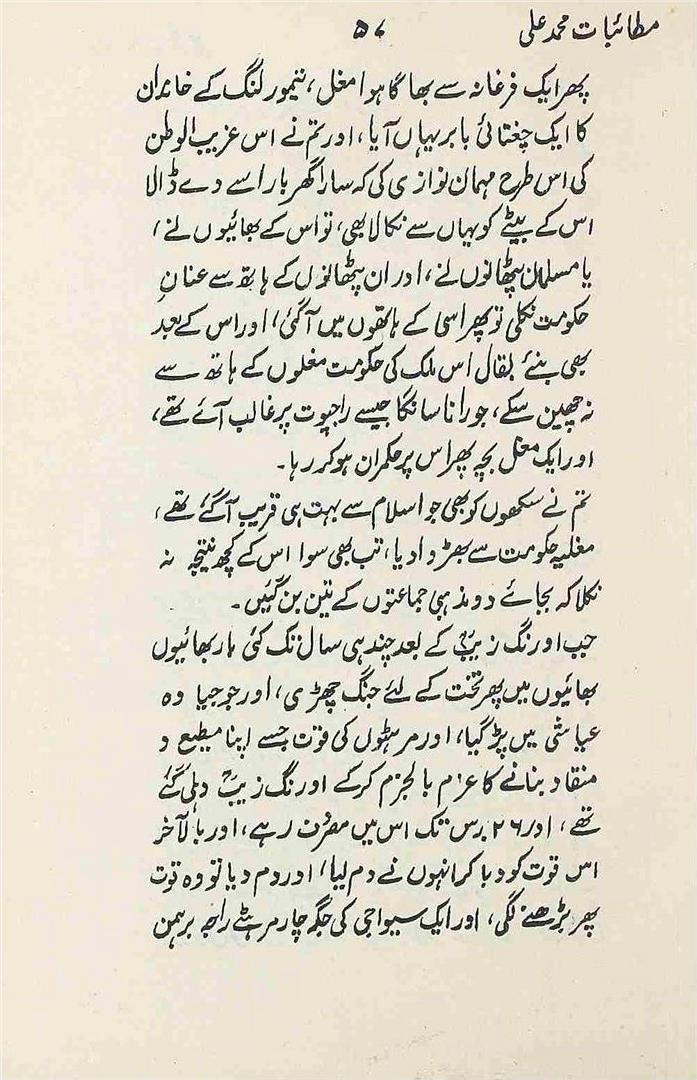 مطائبات محمد علی
۵۷
پھر ایک فرغانہ سے بھاگا ہوا مغل، تیمور لنگ کے خاندان
کا ایک چغتائی بابر یہاں آیا، اور تم نے اس غریب الوطن
کی اس طرح مہمان نوازی کی کہ سارا گھر بار اسے دے ڈالا
اس کے بیٹے کو یہاں سے نکالا بھی، تو اس کے بھائیوں نے،
یا مسلمان پٹھانوں نے، اور ان پٹھانوں کے ہاتھ سے عنانِ
حکومت نکلی تو پھر اسی کے ہاتھوں میں آ گئی، اور اس کے بعد
بھی بنئے بقال اس ملک کی حکومت مغلوں کے ہاتھ سے
نہ چھین سکے، جو رانا سانگا جیسے راجپوت پر غالب آئے تھے،
اور ایک مغل بچہ پھر اس پر حکمران ہو کر رہا۔
تم نے سکھوں کو بھی جو اسلام سے بہت ہی قریب آ گئے تھے،
مغلیہ حکومت سے بھڑوا دیا، تب بھی سوا اس کے کچھ نتیجہ نہ
نکلا کہ بجائے دو مذہبی جماعتوں کے تین بن گئیں۔
جب اورنگ زیبؒ کے بعد چند ہی سال تک کئی بار بھائیوں
بھائیوں میں پھر تخت کے لئے جنگ چھڑی، اور جو جیا وہ
عیاشی میں پڑ گیا، اور مرہٹوں کی قوت جسے اپنا مطیع و
منقاد بنانے کا عزم بالجزم کر کے اورنگ زیبؒ دہلی گئے
تھے، اور ۲۶ برس تک اس میں مصروف رہے، اور بالآخر
اس قوت کو دبا کر انہوں نے دم لیا، اور دم دیا تو وہ قوت
پھر بڑھنے لگی، اور ایک سیواجی کی جگہ چار مرہٹے راجہ برہمن